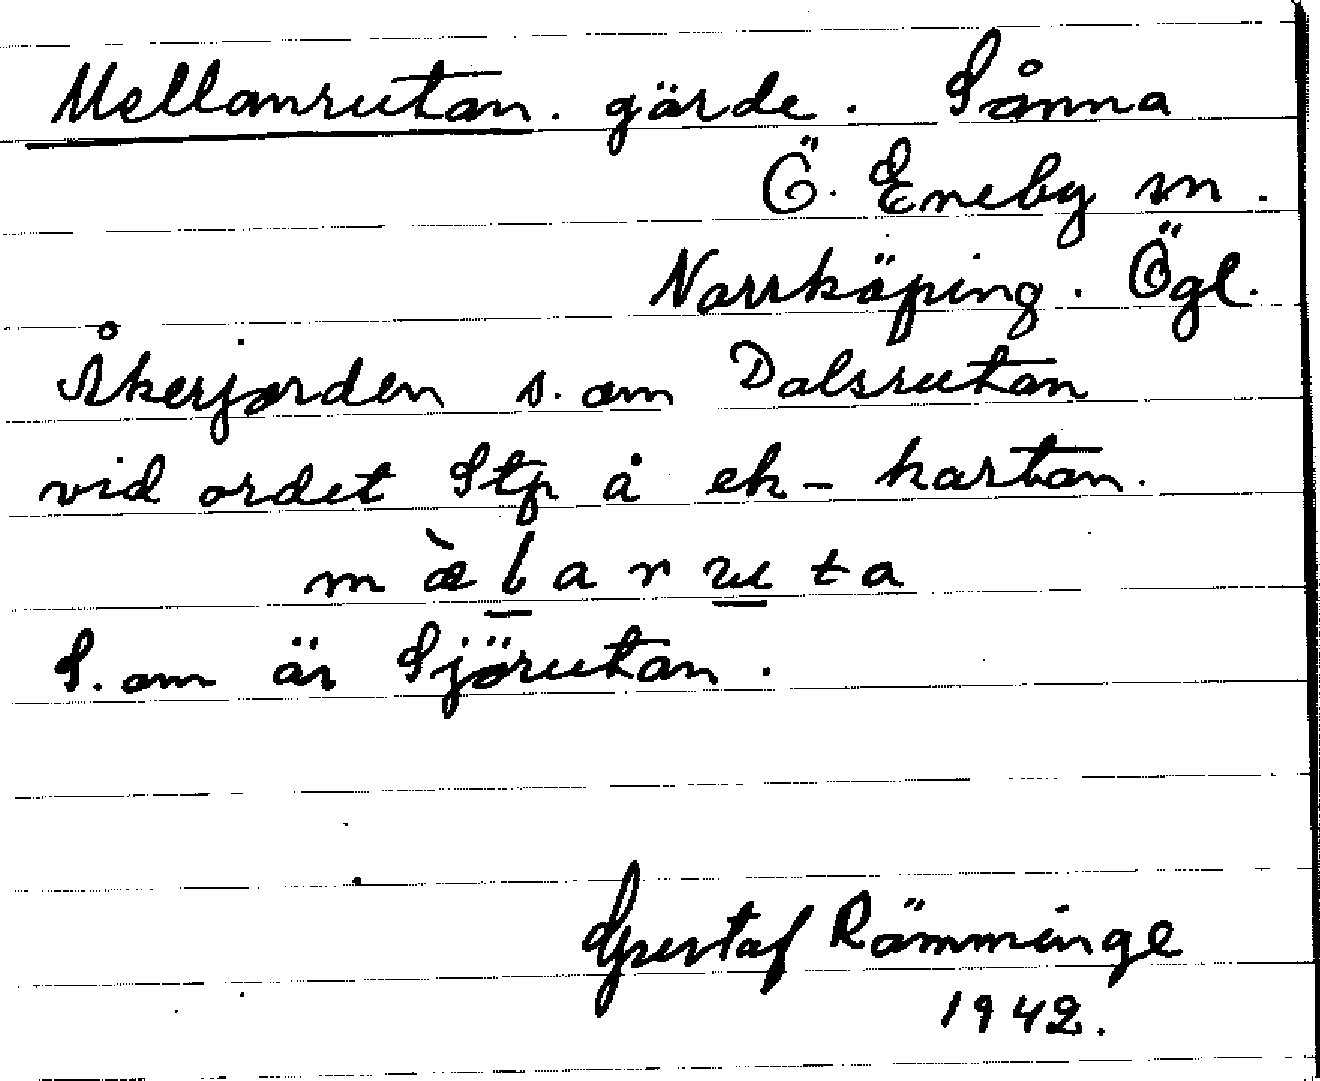 Mellanrutan. gärde. Sånna
Ö. Eneby sn.
Norrköping. Ögl.
Åkerjorden s. om Dalsrutan
vid ordet Stp å ek-kartan.
m æ̀ l a r u t a
S. om är Sjörutan.
Gustaf Rämminge
1942.